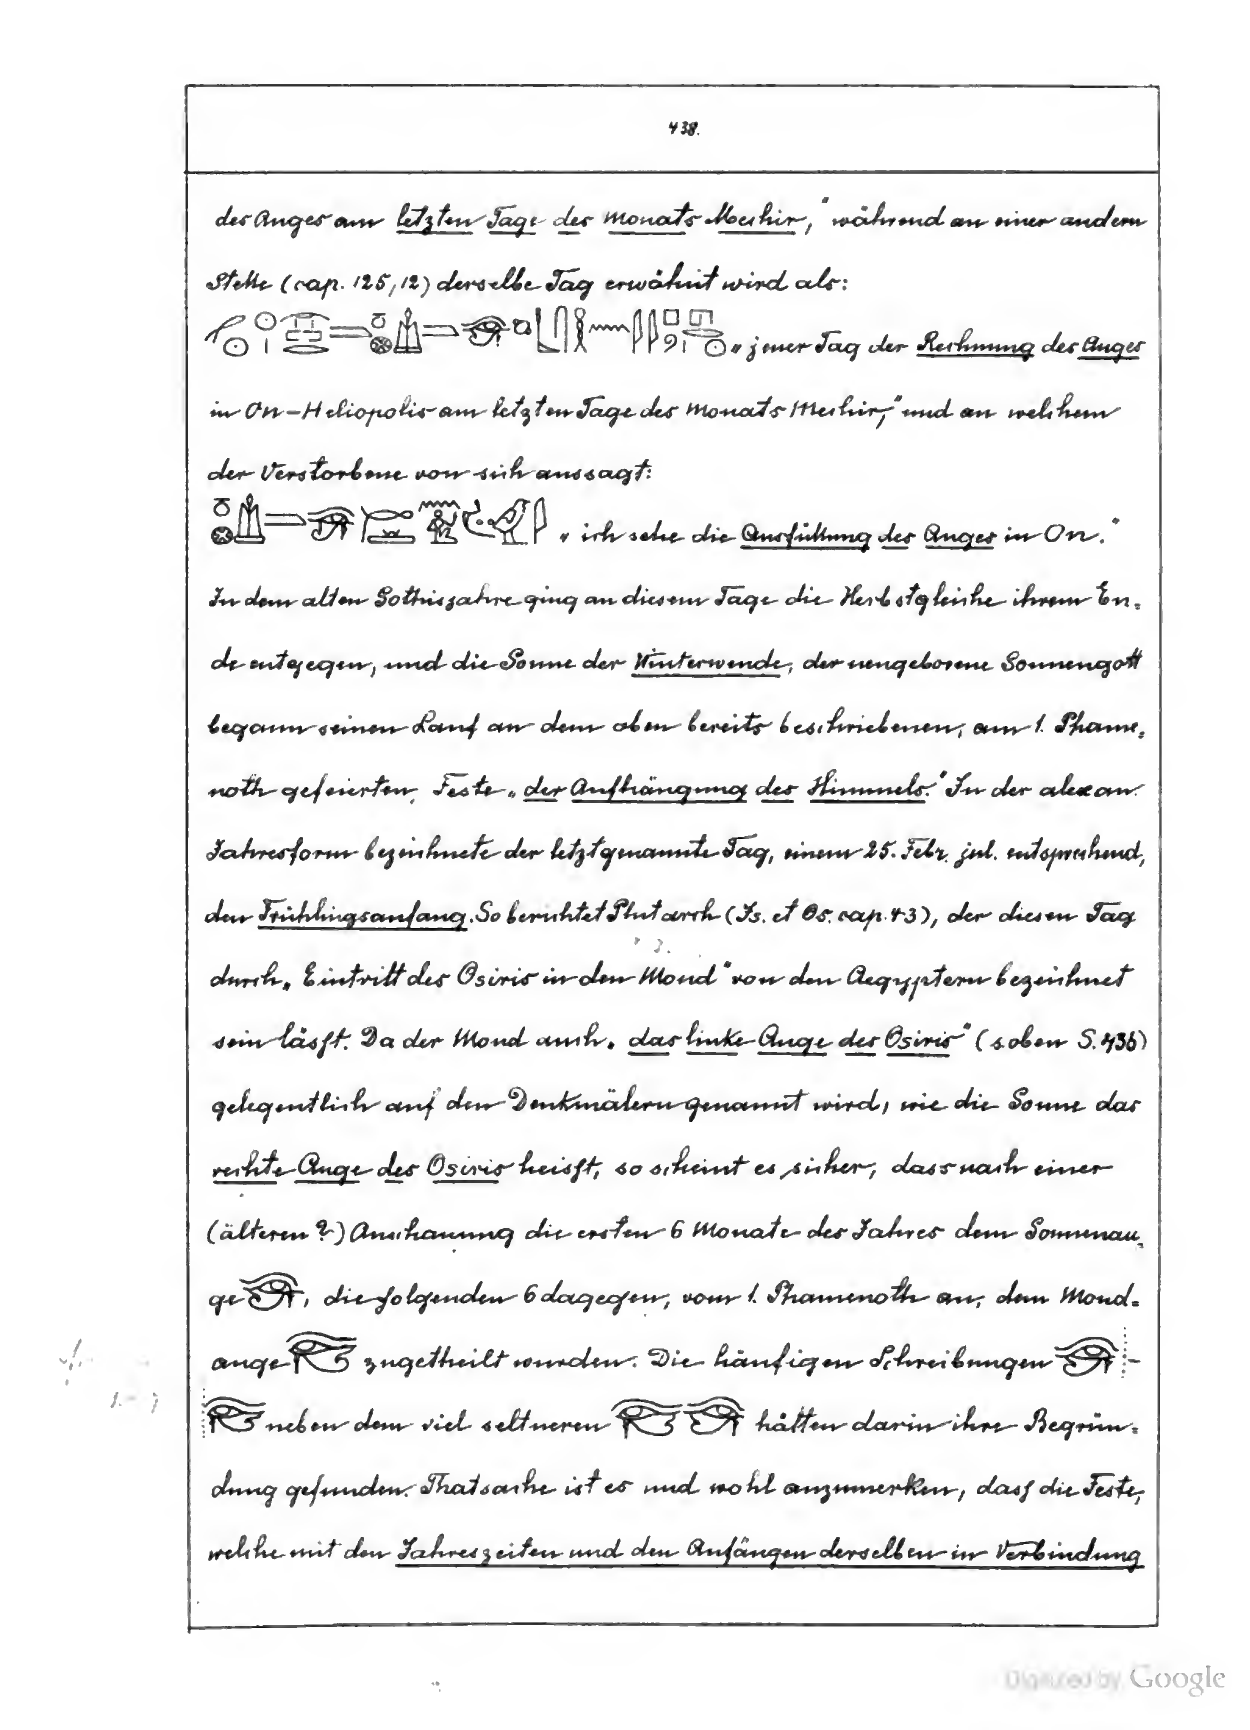 438.
des Auges am letzten Tage des Monats Mechir,“ während an einer andern
Stelle (cap. 125,12) derselbe Tag erwähnt wird als:
„jener Tag der Rechnung des Auges
in On-Heliopolis am letzten Tage des Monats Mechir,“ und an welchem
der Verstorbene von sich aussagt:
„ich sehe die Ausfüllung des Auges in On.“
In dem alten Sothisjahre ging an diesem Tage die Herbstgleiche ihrem En-
de entgegen, und die Sonne der Winterwende, der neugeborene Sonnengott
begann seinen Lauf an dem oben bereits beschriebenen, am 1. Phame-
noth gefeierten Feste „der Aufhängung des Himmels.“ In der alexan.
Jahresform bezeichnete der letztgenannte Tag, einem 25. Febr. jul. entsprechend,
den Frühlingsanfang. So berichtet Plutarch (Is. et Os. cap. 43), der diesen Tag
durch „Eintritt des Osiris in den Mond“ von den Aegyptern bezeichnet
sein läſst. Da der Mond auch „das linke Auge des Osiris“ (s oben S. 436)
gelegentlich auf den Denkmälern genannt wird, wie die Sonne das
rechte Auge des Osiris heiſst, so scheint es sicher, dass nach einer
(älteren?) Anschauung die ersten 6 Monate des Jahres dem Sonnenau-
ge 𓂀, die folgenden 6 dagegen, vom 1. Phamenoth an, dem Mond-
auge 𓂀 zugetheilt wurden. Die häufigen Schreibungen 𓂀-
𓂀 neben dem viel seltneren 𓂀𓂀 hätten darin ihre Begrün-
dung gefunden. Thatsache ist es und wohl anzumerken, daſs die Feste,
welche mit den Jahreszeiten und den Anfängen derselben in Verbindung
Digitized by Google